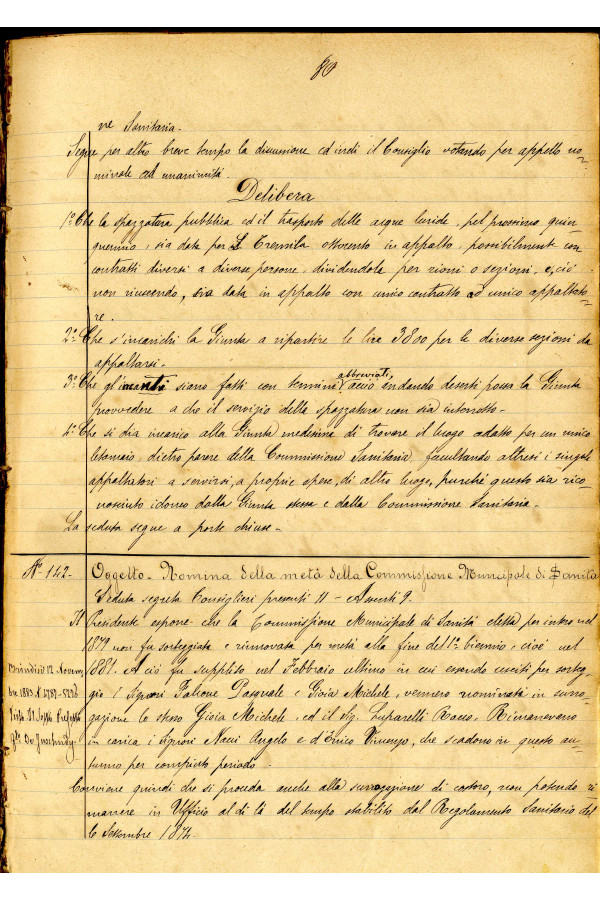 80
ne Sanitaria.
Segue per altro breve tempo la discussione ed indi il Consiglio votando per appello no-
minale ad unanimità.
Delibera
1º Che la spazzatura pubblica ed il trasporto delle acque luride, pel prossimo quin-
quennio, sia data per L. Tremila ottocento in appalto, possibilment con
contratti diversi a diverse persone, dividendola per rioni o sezioni, e, ciò
non riuscendo, sia data in appalto con unico contratto ad unico appaltato-
re.
2º Che s'incarichi la Giunta a ripartire le lire 3800 per le diverse sezioni da
appaltarsi.
3º Che gl'incanti siano fatti con termini abbreviati, acciò andando deserti possa la Giunta
provvedere a che il servizio della spazzatura non sia interrotto.
4º Che si dia incarico alla Giunta medesima di trovare il luogo adatto per un unico
letamaio, dietro parere della Commissione Sanitaria, facultando altresì i singoli
appaltatori a servirsi, a proprie spese, di altro luogo, purchè questo sia rico-
nosciuto idoneo dalla Giunta stessa e dalla Commissione Sanitaria.
La seduta segue a porte chiuse.
Nº 142. Oggetto. Nomina della metà della Commissione Municipale di Sanità
Seduta segreta Consiglieri presenti 11 - Assenti 9.
Il Presidente espone che la Commissione Municipale di Sanità eletta per intero nel
1879 non fu sorteggiata e rinnovata per metà alla fine del 1º biennio, cioè nel
1881. A ciò fu supplito nel Febbraio ultimo in cui essendo usciti per sorteg-
gio i Signori Falcone Pasquale e Gioia Michele, vennero nominati in surro-
gazione lo stesso Gioia Michele, ed il Sig. Luparelli Rocco. Rimanevano
in carica i Signori Nacci Angelo e d'Errico Vincenzo, che scadono in questo au-
tunno per compiuto periodo.
Conviene quindi che si proceda anche alla surrogazione di costoro, non potendo ri
manere in Ufficio al di là del tempo stabilito dal Regolamento Sanitario del
6 Settembre 1874.
Brindisi 12 Novem
bre 1883
Visto Il Sotto Prefetto